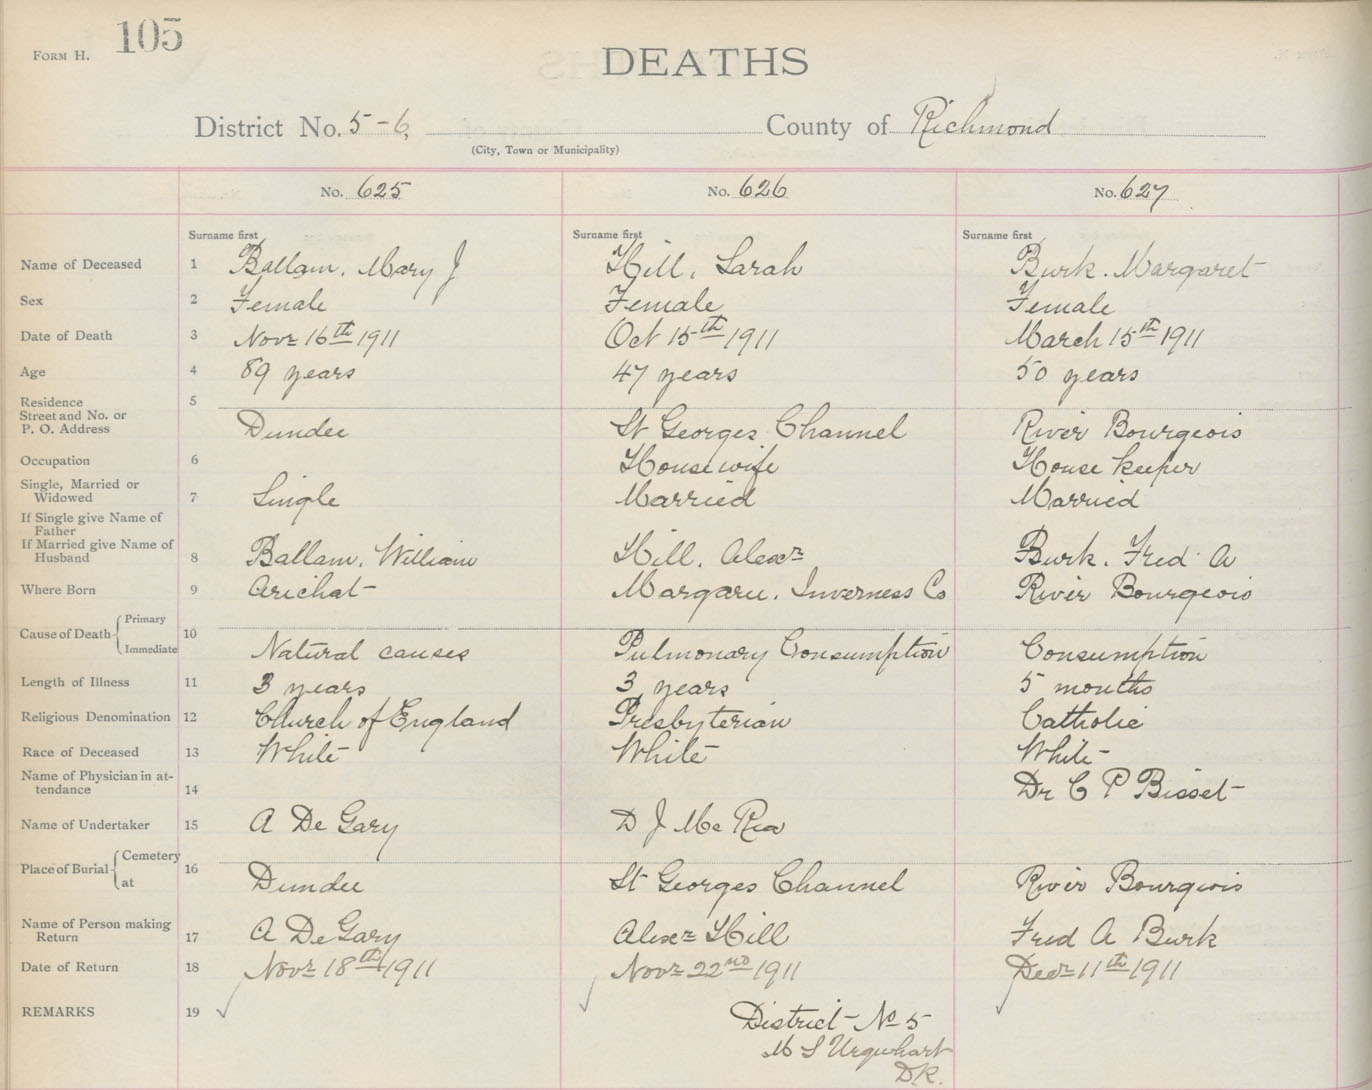 FORM H. 105
DEATHS
District No. 5-6, County of Richmond
(City, Town or Municipality)
No. 625 No. 626 No. 627
Surname first Surname first Surname first
Name of Deceased 1 Ballam, Mary J Hill, Sarah Burk. Margaret
Sex 2 Female Female Female
Date of Death 3 Novr 16th 1911 Oct 15th 1911 March 15th 1911
Age 4 89 years 47 years 50 years
Residence 5
Street and No. or
P. O. Address Dundee St Georges Channel River Bourgeois
Occupation 6 Housewife House keeper
Single, Married or
Widowed 7 Single Married Married
If Single give Name of
Father
If Married give Name of
Husband 8 Ballam, William Hill, Alexr Burk. Fred A
Where Born 9 Arichat Margaree, Inverness Co River Bourgeois
Cause of Death Primary 10
Immediate Natural causes Pulmonary Consumption Consumption
Length of Illness 11 3 years 3 years 5 months
Religious Denomination 12 Church of England Presbyterian Catholic
Race of Deceased 13 White White White
Name of Physician in at-
tendance 14 Dr C P Bisset
Name of Undertaker 15 A De Gary D J Mc Rea
Place of Burial Cemetery 16
at Dundee St Georges Channel River Bourgeois
Name of Person making
Return 17 A De Gary Alexr Hill Fred A Burk
Date of Return 18 Novr 18th 1911 Novr 22nd 1911 Decr 11th 1911
REMARKS 19 District No 5
M S Urquhart
D.R.